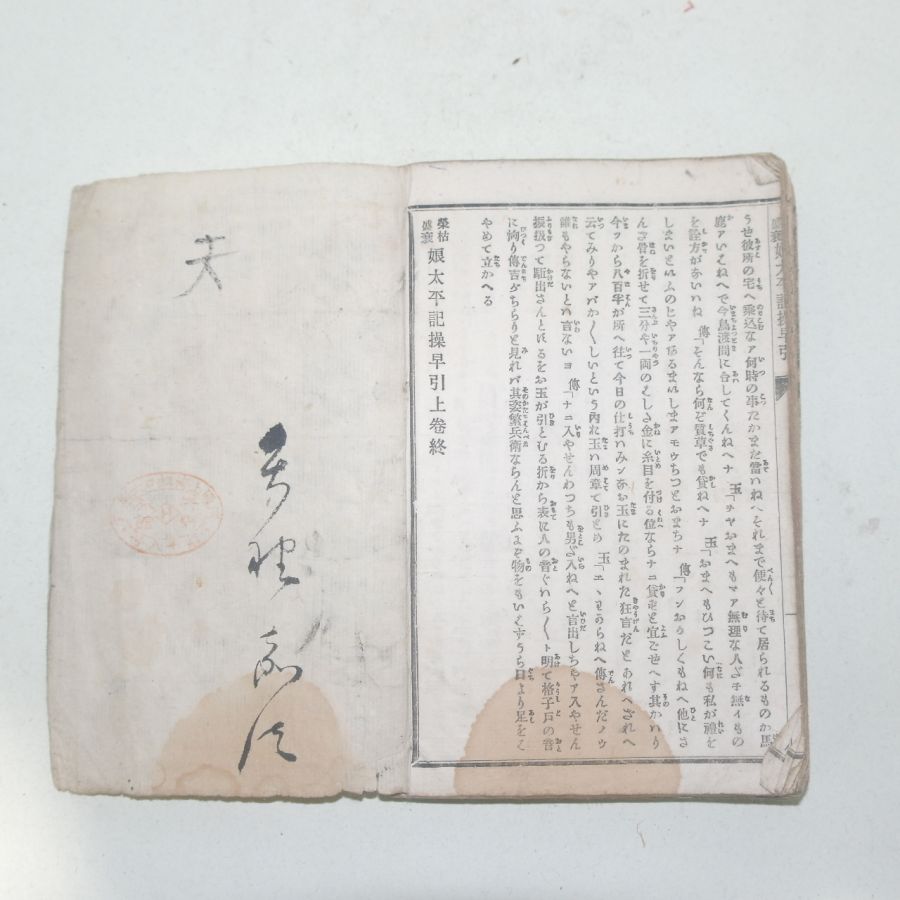 盛衰娘太平記操早引
うせ彼所の宅へ乘込なァ何時の事だかまだ當いねへそれまで便々と待て居られるものか馬
鹿アいはねへで今鳥渡間に合してくんねへナ 玉「ヲヤおまへもマア無理な人ざチ無イもの
を詮方がないはね 傳「そんなら何ぞ質草でも貸ねへナ 玉「おまへもひつこい何も私が禮を
しまいとはふのじやアあるまいしまアモウちつとおまちナ 傳「フンおかしくもねへ他にさ
んざ骨を折せて三分や一両のはした金に糸目を付る位ならナニ貸ずと宜ごぜへす其かはり
今ツから八百半が所へ往て今日の仕打はみンなお玉にたのまれた狂言だとあれへざれへ
云てみりやアバか〱しいといふ内にお玉は周章て引とめ 玉「エヽモわからねへ傳さんだノウ
誰もやらないとは言ないヨ 傳「ナニ入やせんわつちも男ざ入ねへと言出しちやア入やせん
振拔つて駈出さんとするをお玉が引とむる折から表に人の音ぐはら〱ト明て格子戸の音
に恟り傳吉がちらりと見れバ其姿繁兵衛ならんと思ふまゝ物をもいはずうら口より足をは
やめて立かへる
榮枯盛衰 娘太平記操早引上巻終
夫